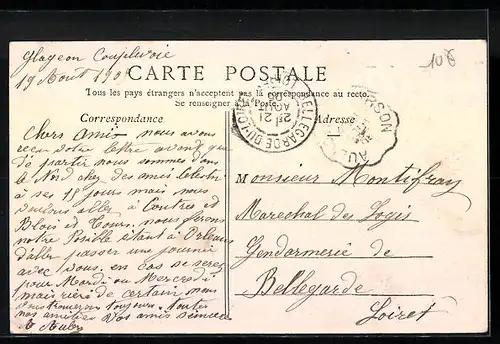 Glageon Couplevoie
19 Aout 190
106
CARTE POSTALE
Tous les pays étrangers n'acceptent pas la correspondance au recto.
Se renseigner à la Poste.
Correspondance
Adresse
BELLEGARDE-DU-LOIRET
21
AOUT
LOIRET
Chers amis nous avons
recu votre lettre avant que
de partir nous sommes dans
le Nord chez des amis
à ses 18 jours mais nous
voulons aller à Contres et
Blois et Tours. nous ferons
notre Posible étant à Orleans
d'aller passer une journée
avec vous. en cas se serait
pour Mardi ou Mercredi
mais rien de certain nous
toujours. toutes
nos amitiés Vos amis sincères
Monsieur Montifray
Marechal des Logis
Gendarmerie de
Bellegarde
Loiret